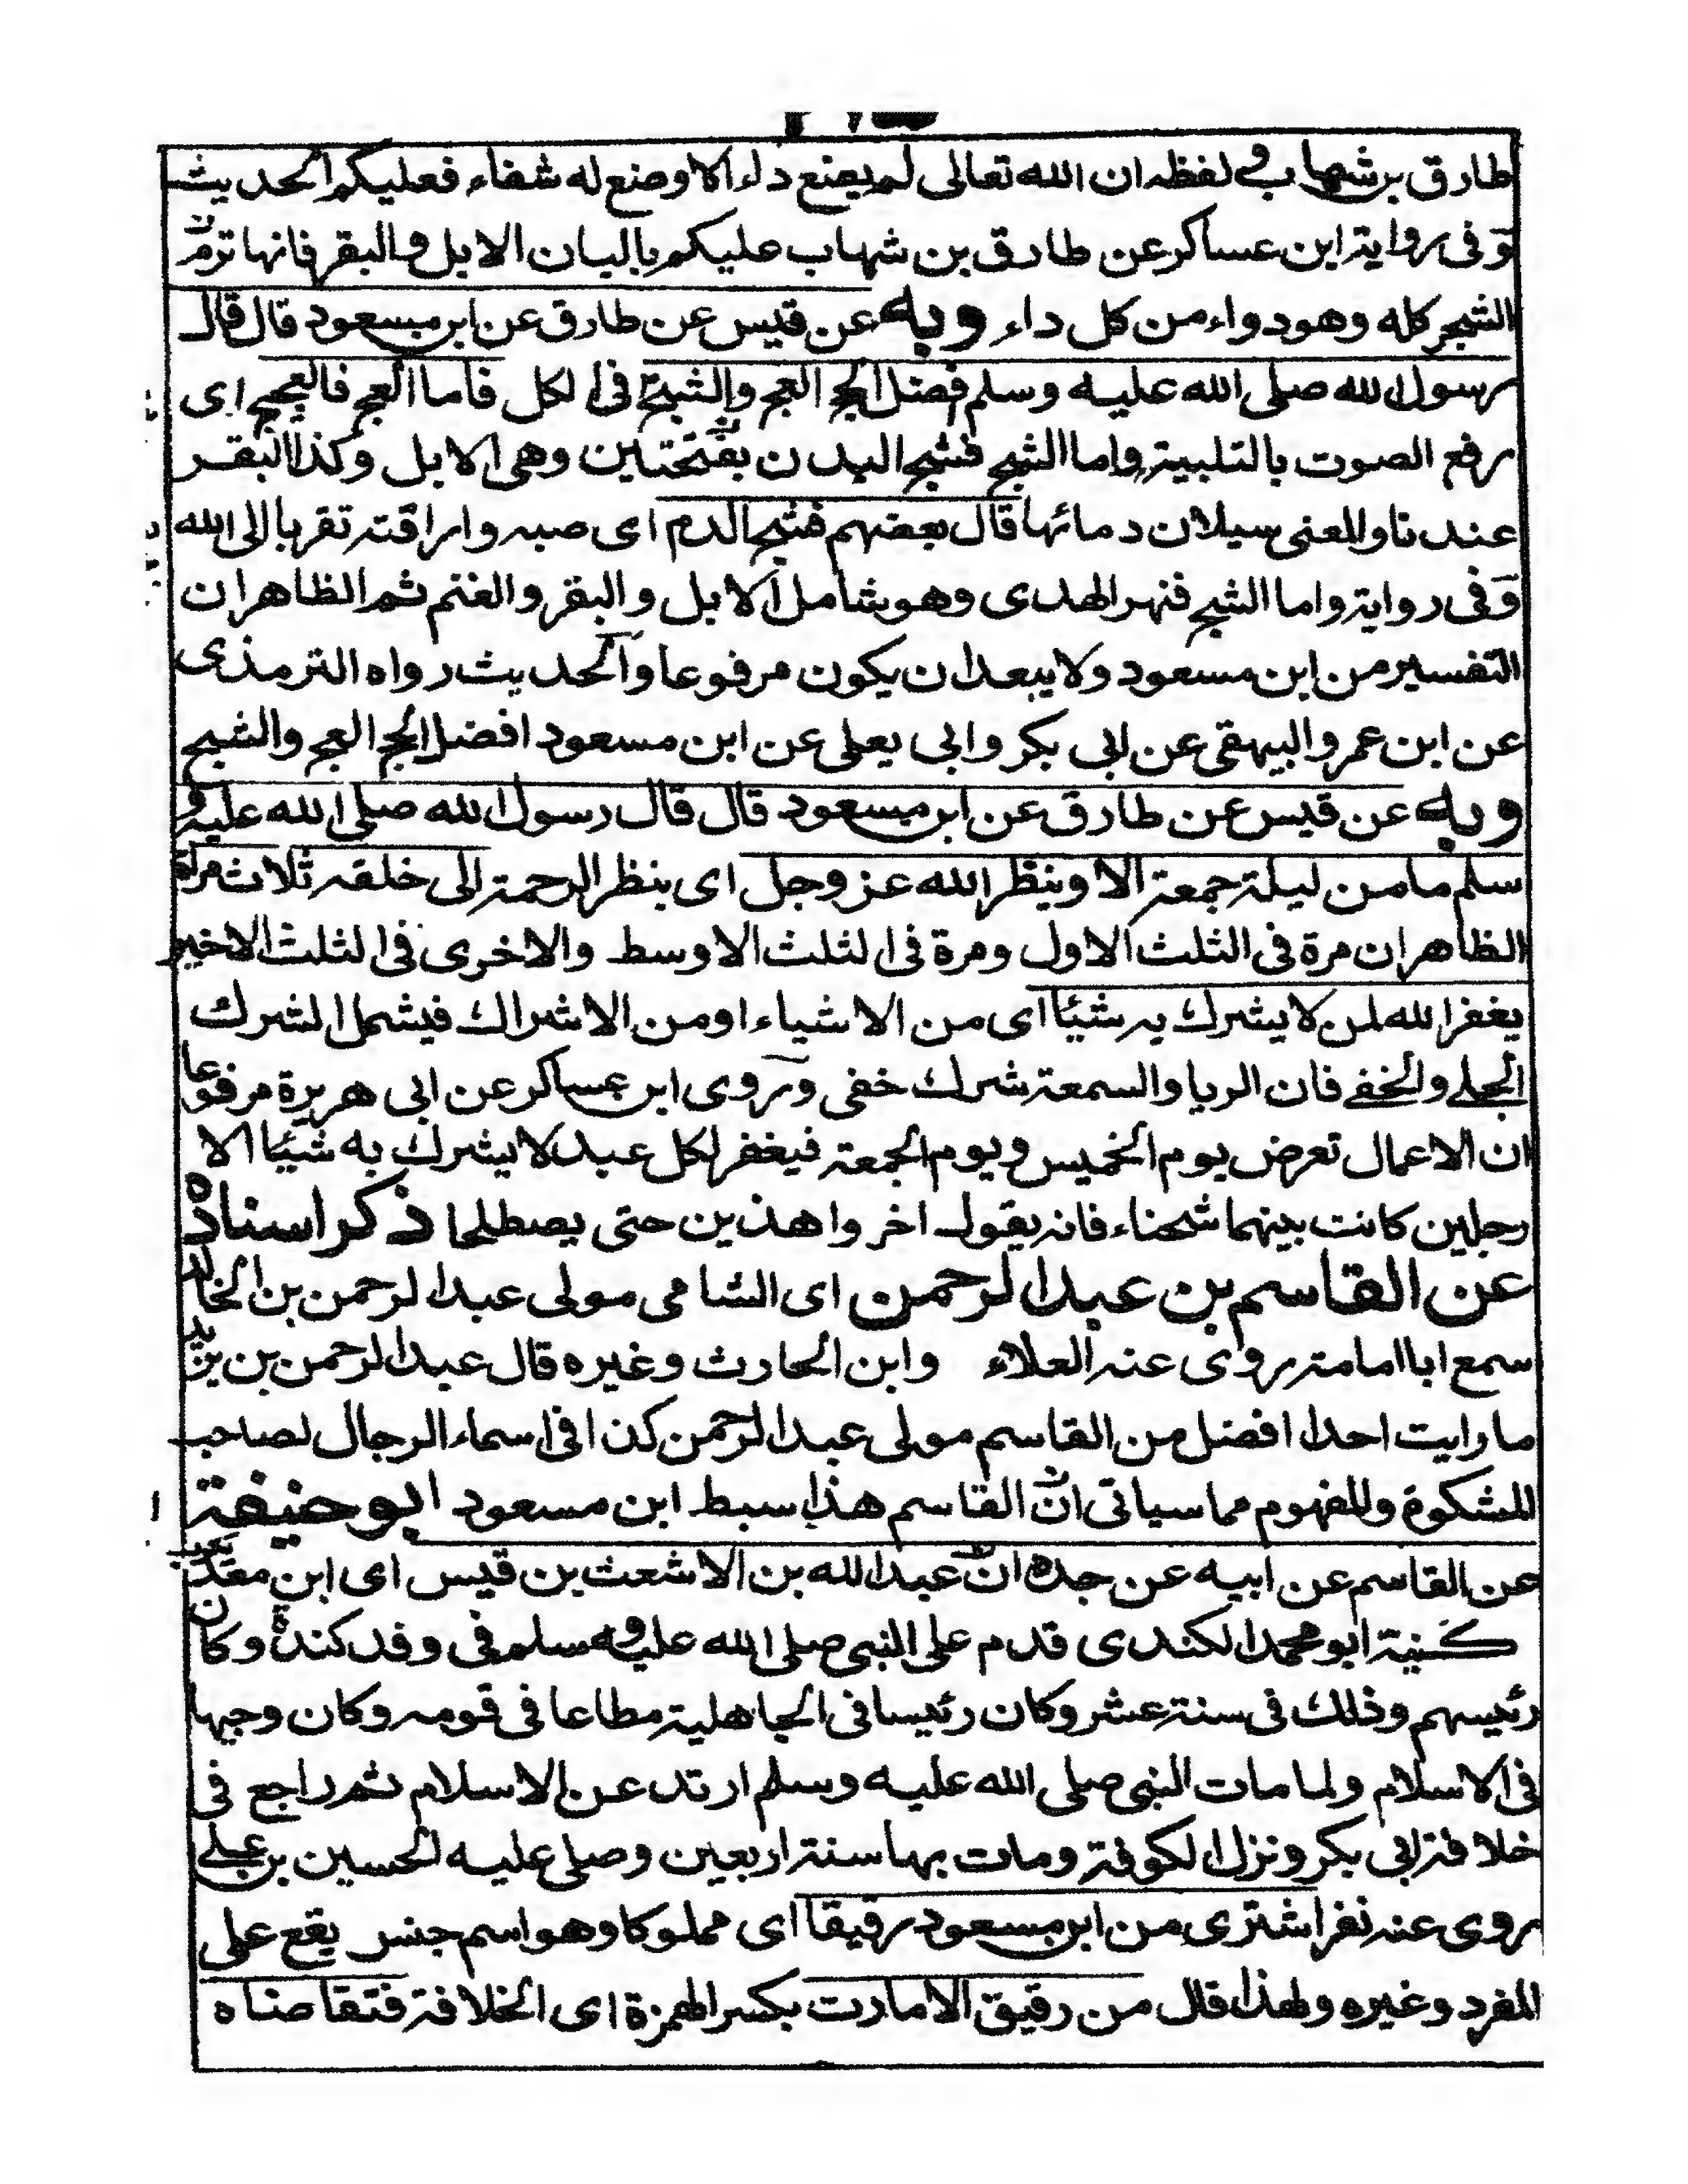 طارق بن شهاب في لفظه ان الله تعالى لم يضع داء الا وضع له شفاء فعليكم الحديث
وفى رواية ابن عساكر عن طارق بن شهاب عليكم بالبان الابل والبقر فانها ترم
الشجر كله وهو دواء من كل داء وبه عن قيس عن طارق عن ابن مسعود قال قال
رسول الله صلى الله عليه وسلم فضل الحج العج والثج فى الكل فاما العج فالعجيج اى
رفع الصوت بالتلبية واما الثج فثج البدن بفتحتين وهى الابل وكذا البقر
عندنا والمعنى سيلان دمائها قال بعضهم فثج الدم اى صبه واراقته تقربا الى الله
وفى رواية واما الثج فنهر الهدى وهو شامل الابل والبقر والغنم ثم الظاهر ان
التفسير من ابن مسعود ولا يبعد ان يكون مرفوعا والحديث رواه الترمذى
عن ابن عمر والبيهقى عن ابى بكر وابى يعلى عن ابن مسعود افضل الحج العج والثج
وبه عن قيس عن طارق عن ابن مسعود قال قال رسول الله صلى الله عليه و
سلم ما من ليلة جمعة الا وينظر الله عز وجل اى ينظر الرحمة الى خلقه ثلاث مراة
الظاهر ان مرة فى الثلث الاول ومرة فى الثلث الاوسط والاخرى فى الثلث الاخير
يغفر الله لمن لا يشرك به شيئا اى من الاشياء او من الاشراك فيشمل الشرك
الجلے والخفے فان الريا والسمعة شرك خفى وروى ابن عساكر عن ابى هريرة مرفوعا
ان الاعمال تعرض يوم الخميس ويوم الجمعة فيغفر لكل عبد لا يشرك به شيئا الا
رجلين كانت بينهما شحناء فانه يقول اخروا هذين حتى يصطلحا ذكر اسناده
عن القاسم بن عبد الرحمن اى الشامى مولى عبد الرحمن بن الخالد
سمع ابا امامة روى عنه العلاء وابن الحارث وغيره قال عبد الرحمن بن يزيد
ما رايت احدا افضل من القاسم مولى عبد الرحمن كذا فى اسماء الرجال لصاحب
المشكوة والمفهوم مما سياتى ان القاسم هذا سبط ابن مسعود ابو حنيفة
عن القاسم عن ابيه عن جده ان عبد الله بن الاشعث بن قيس اى ابن معديكرب
كنية ابو محمد الكندى قدم على النبى صلى الله عليه وسلم فى وفد كندة وكان
رئيسهم وذلك فى سنة عشر وكان رئيسا فى الجاهلية مطاعا فى قومه وكان وجيها
فى الاسلام ولما مات النبى صلى الله عليه وسلم ارتد عن الاسلام ثم راجع فى
خلافة ابى بكر ونزل الكوفة ومات بها سنة اربعين وصلى عليه الحسين بن علے
روى عنه نفر اشترى من ابن مسعود رقيقا اى مملوكا وهو اسم جنس يقع على
المفرد وغيره ولهذا قال من رقيق الامارت بكسر الهمزة اى الخلافة فتقاضاه